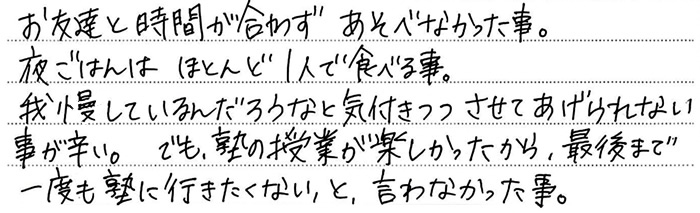 お友達と時間が合わず あそべなかった事。
夜ごはんは ほとんど 1人で食べる事。
我慢しているんだろうなと気付きつつ させてあげられない
事が辛い。 でも、塾の授業が楽しかったから、最後まで
一度も塾に行きたくない、と、言わなかった事。